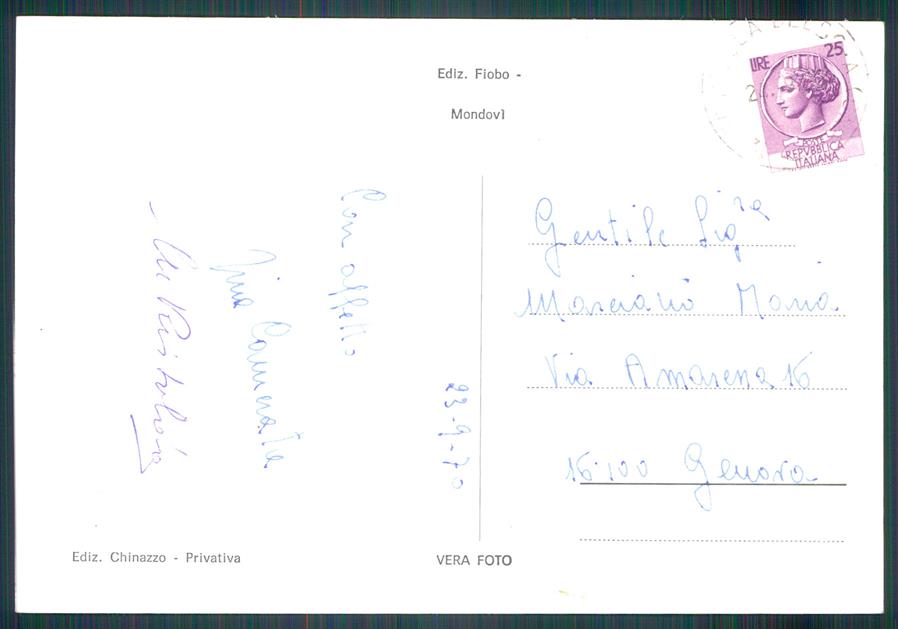 Ediz. Fiobo -
Mondovì
LIRE 25
POSTE
REPVBBLICA
ITALIANA
Con affetto
23-9-70
Gentile Sig.ra
Marsiano Maria
Via Amarena 16
16100 Genova
Ediz. Chinazzo - Privativa
VERA FOTO